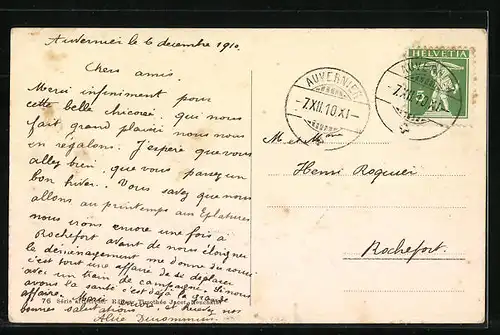 Auvernier le 6 decembre 1910.
Chers amis.
Merci infiniment pour
cette belle chicorée qui nous
fait grand plaisir nous nous
en régalons. J'espère que vous
allez bien, que vous passez un
bon hiver. Vous savez que nous
allons au printemps aux Eplatures
nous irons encore une fois à
Rochefort avant de nous éloigner
le déménagement me donne du souci
c'est tout une affaire de se déplacer
avec un train de campagne. Si nous
avons la santé c'est déjà à grande
affaire. Merci encore et recevez nos
bonnes salutations
Alice Ducommun
76 Série
HELVETIA
5
AUVERNIER
-7.XII.10.XI-
AUVERNIER
-7.XII.10.XI-
M. et Mme
Henri Roquier
Rochefort.